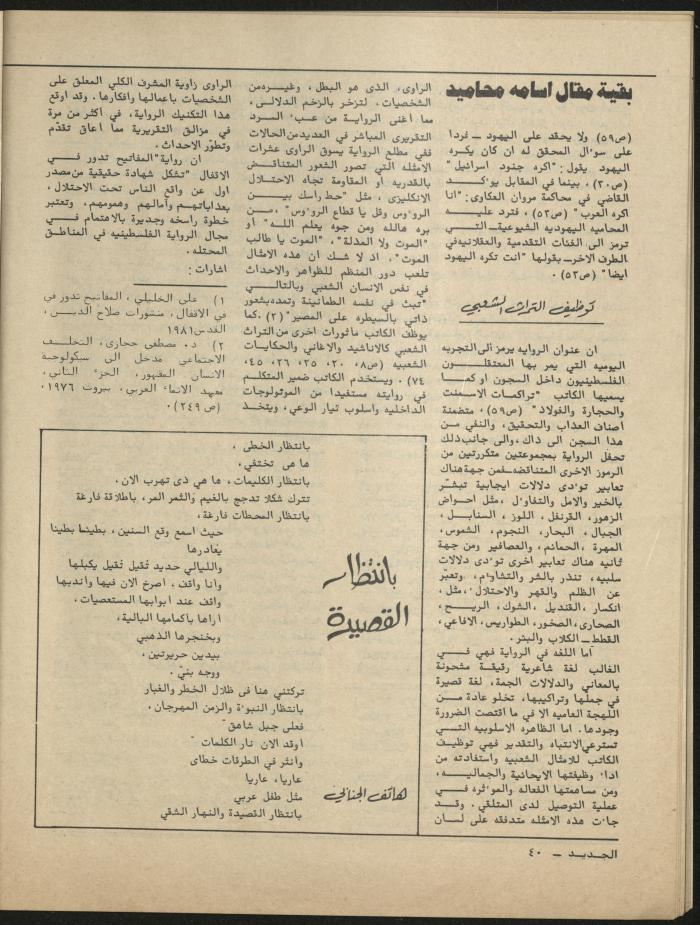 بقية مقال اسامه محاميد
(ص٥٩) ولا يحقد على اليهود ــ فردا
على سوال المحقق له ان كان يكره
اليهود يقول: "اكره جنود اسرائيل"
(ص٣٠)، بينما في المقابل يوكد
القاضي في محاكمة مروان العكاوي: "انا
اكره العرب" (ص٥٢)، فترد عليه
المحاميه اليهوديه الشيوعيه ــ التي
ترمز الى الفئات التقدمية والعقلانيه في
الطرف الاخر ــ بقولها "انت تكره اليهود
ايضا" (ص٥٢).
توظيف التراث الشعبي
ان عنوان الروايه يرمز الى التجربه
اليوميه التي يمر بها المعتقلون
الفلسطينيون داخل السجون او كما
يسميها الكاتب "تراكمات الاسمنت
والحجارة والفولاذ" (ص٥٩)، متضمنة
اصناف العذاب والتحقيق، والنفي من
هذا السجن الى ذاك، والى جانب ذلك
تحفل الرواية بمجموعتين متكررتين من
الرموز الاخرى المتناقضه فمن جهة هناك
تعابير تودى دلالات ايجابية تبشر
بالخير والامل والتفاول، مثل احواض
الزهور، القرنفل، اللوز، السنابل،
الجبال، البحار، النجوم، الشموس،
المهرة، الحمائم، والعصافير ومن جهة
ثانيه هناك تعابير اخرى تودى دلالات
سلبيه، تنذر بالشر والتشاوم، وتعبر
عن الظلم والقهر والاحتلال، مثل،
انكسار، القنديل، الشوك، الريح،
الصحارى، الصخور، الطواريس، الافاعي،
القطط ــ الكلاب والبئر.
اما اللغه في الرواية فهي في
الغالب لغة شاعرية رقيقة مشحونة
بالمعاني والدلالات الجمة، لغة قصيرة
في جملها وتراكيبها، تخلو عادة من
اللهجة العاميه الا في ما اقتضت الضرورة
وجودها. اما الظاهره الاسلوبيه التي
تسترعي الانتباه والتقدير فهي توظيف
الكاتب للامثال الشعبيه واستفادته من
اداء وظيفتها الايحائية والجماليه،
ومن مساهمتها الفعاله والموثره في
عملية التوصيل لدى المتلقي. وقد
جاءت هذه الامثله متدفقه على لسان
الراوى، الذى هو البطل، وغيره من
الشخصيات، لتزخر بالزخم الدلالي،
مما اغنى الرواية من عبء السرد
التقريرى المباشر في العديد من الحالات
ففي مطلع الرواية يسوق الراوى عشرات
الامثله التي تصور الشعور المتناقض
بالقدريه او المقاومة تجاه الاحتلال
الانكليزى، مثل "حط راسك بين
الروءوس وقل يا قطاع الروءوس"، من
بره هالله ومن جوه يعلم الله" او
"الموت ولا المذلة"، "الموت يا طالب
الموت"، اذ لا شك ان هذه الامثال
تلعب دور المنظم للظواهر والاحداث
في نفس الانسان الشعبي وبالتالي
"تبث في نفسه الطمانينة وتمده بشعور
ذاتي بالسيطره على المصير" (٢). كما
يوظف الكاتب ماثورات اخرى من التراث
الشعبي كالاناشيد والاغاني والحكايات
الشعبيه (ص٠٨، ٢٠، ٢٥، ٢٦، ٤٥،
٧٤). ويستخدم الكاتب ضمير المتكلم
في روايته مستفيدا من المونولوجات
الداخليه واسلوب تيار الوعي، ويتخذ
الراوى زاوية المشرف الكلي المعلق على
الشخصيات باعمالها وافكارها. وقد اوقع
هذا التكنيك الرواية، في اكثر من مرة
في مزالق التقريرية مما اعاق تقدم
وتطور الاحداث.
ان رواية "المفاتيح تدور في
الاقفال" تشكل شهادة حقيقية من مصدر
اول عن واقع الناس تحت الاحتلال،
بعذاباتهم وآمالهم وهمومهم، وتعتبر
خطوة راسخه وجديرة بالاهتمام في
مجال الرواية الفلسطينيه في المناطق
المحتله.
اشارات:
١) على الخليلي، المفاتيح تدور في
في الاقفال، منشورات صلاح الدين،
القدس ١٩٨١
٢) د. مصطفى حجازى، التخلف
الاجتماعي مدخل الى سيكولوجية
الانسان المقهور، الجزء الثاني،
معهد الانماء العربي، بيروت ١٩٧٦،
(ص٢٤٩).
بانتظار
القصيدة
هاتف الجنابي
بانتظار الخطى،
ها هى تختفي،
بانتظار الكليمات، ها هي ذى تهرب الان،
تترك شكلا تدجج بالغيم والثمر المر، باطلاقة فارغة
بانتظار المحطات فارغة،
حيث اسمع وقع السنين، بطيئا بطيئا
يغادرها
والليالي حديد ثقيل ثقيل يكبلها
وانا واقف، اصرخ الان فيها واندبها
واقف عند ابوابها المستعصيات،
اراها باكمامها البالية،
وبخنجرها الذهبي
بيدين حريرتين،
ووجه بني.
تركتني هنا في ظلال الخطر والغبار
بانتظار النبوءة والزمن المهرجان،
فعلى جبل شاهق
اوقد الان نار الكلمات
وانثر في الطرقات خطاى
عاريا، عاريا
مثل طفل عربي
بانتظار القصيدة والنهار الشقي
الجديد ــ ٤٠